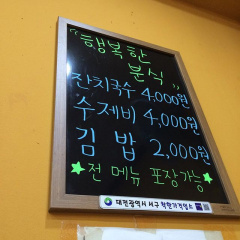 "행복한
분식"
잔치국수 4,000원
수제비 4,000원
김밥 2,000원
★전 메뉴 포장가능★
대전광역시 서구 착한가격업소